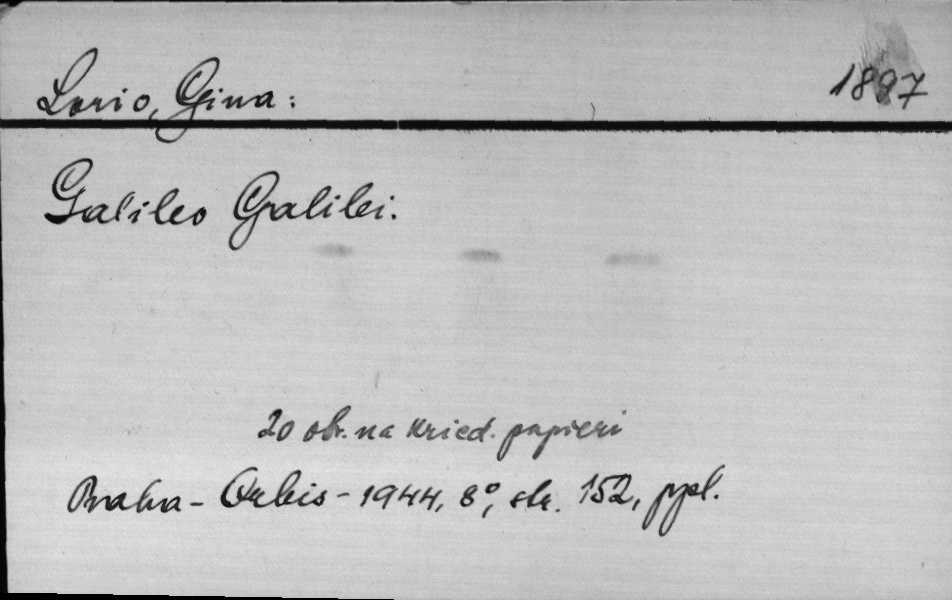 Lorio, Gina:
1897
Galileo Galilei.
20 obr. na kried. papieri
Praha - Orbis - 1944, 8°, str. 152, ppl.